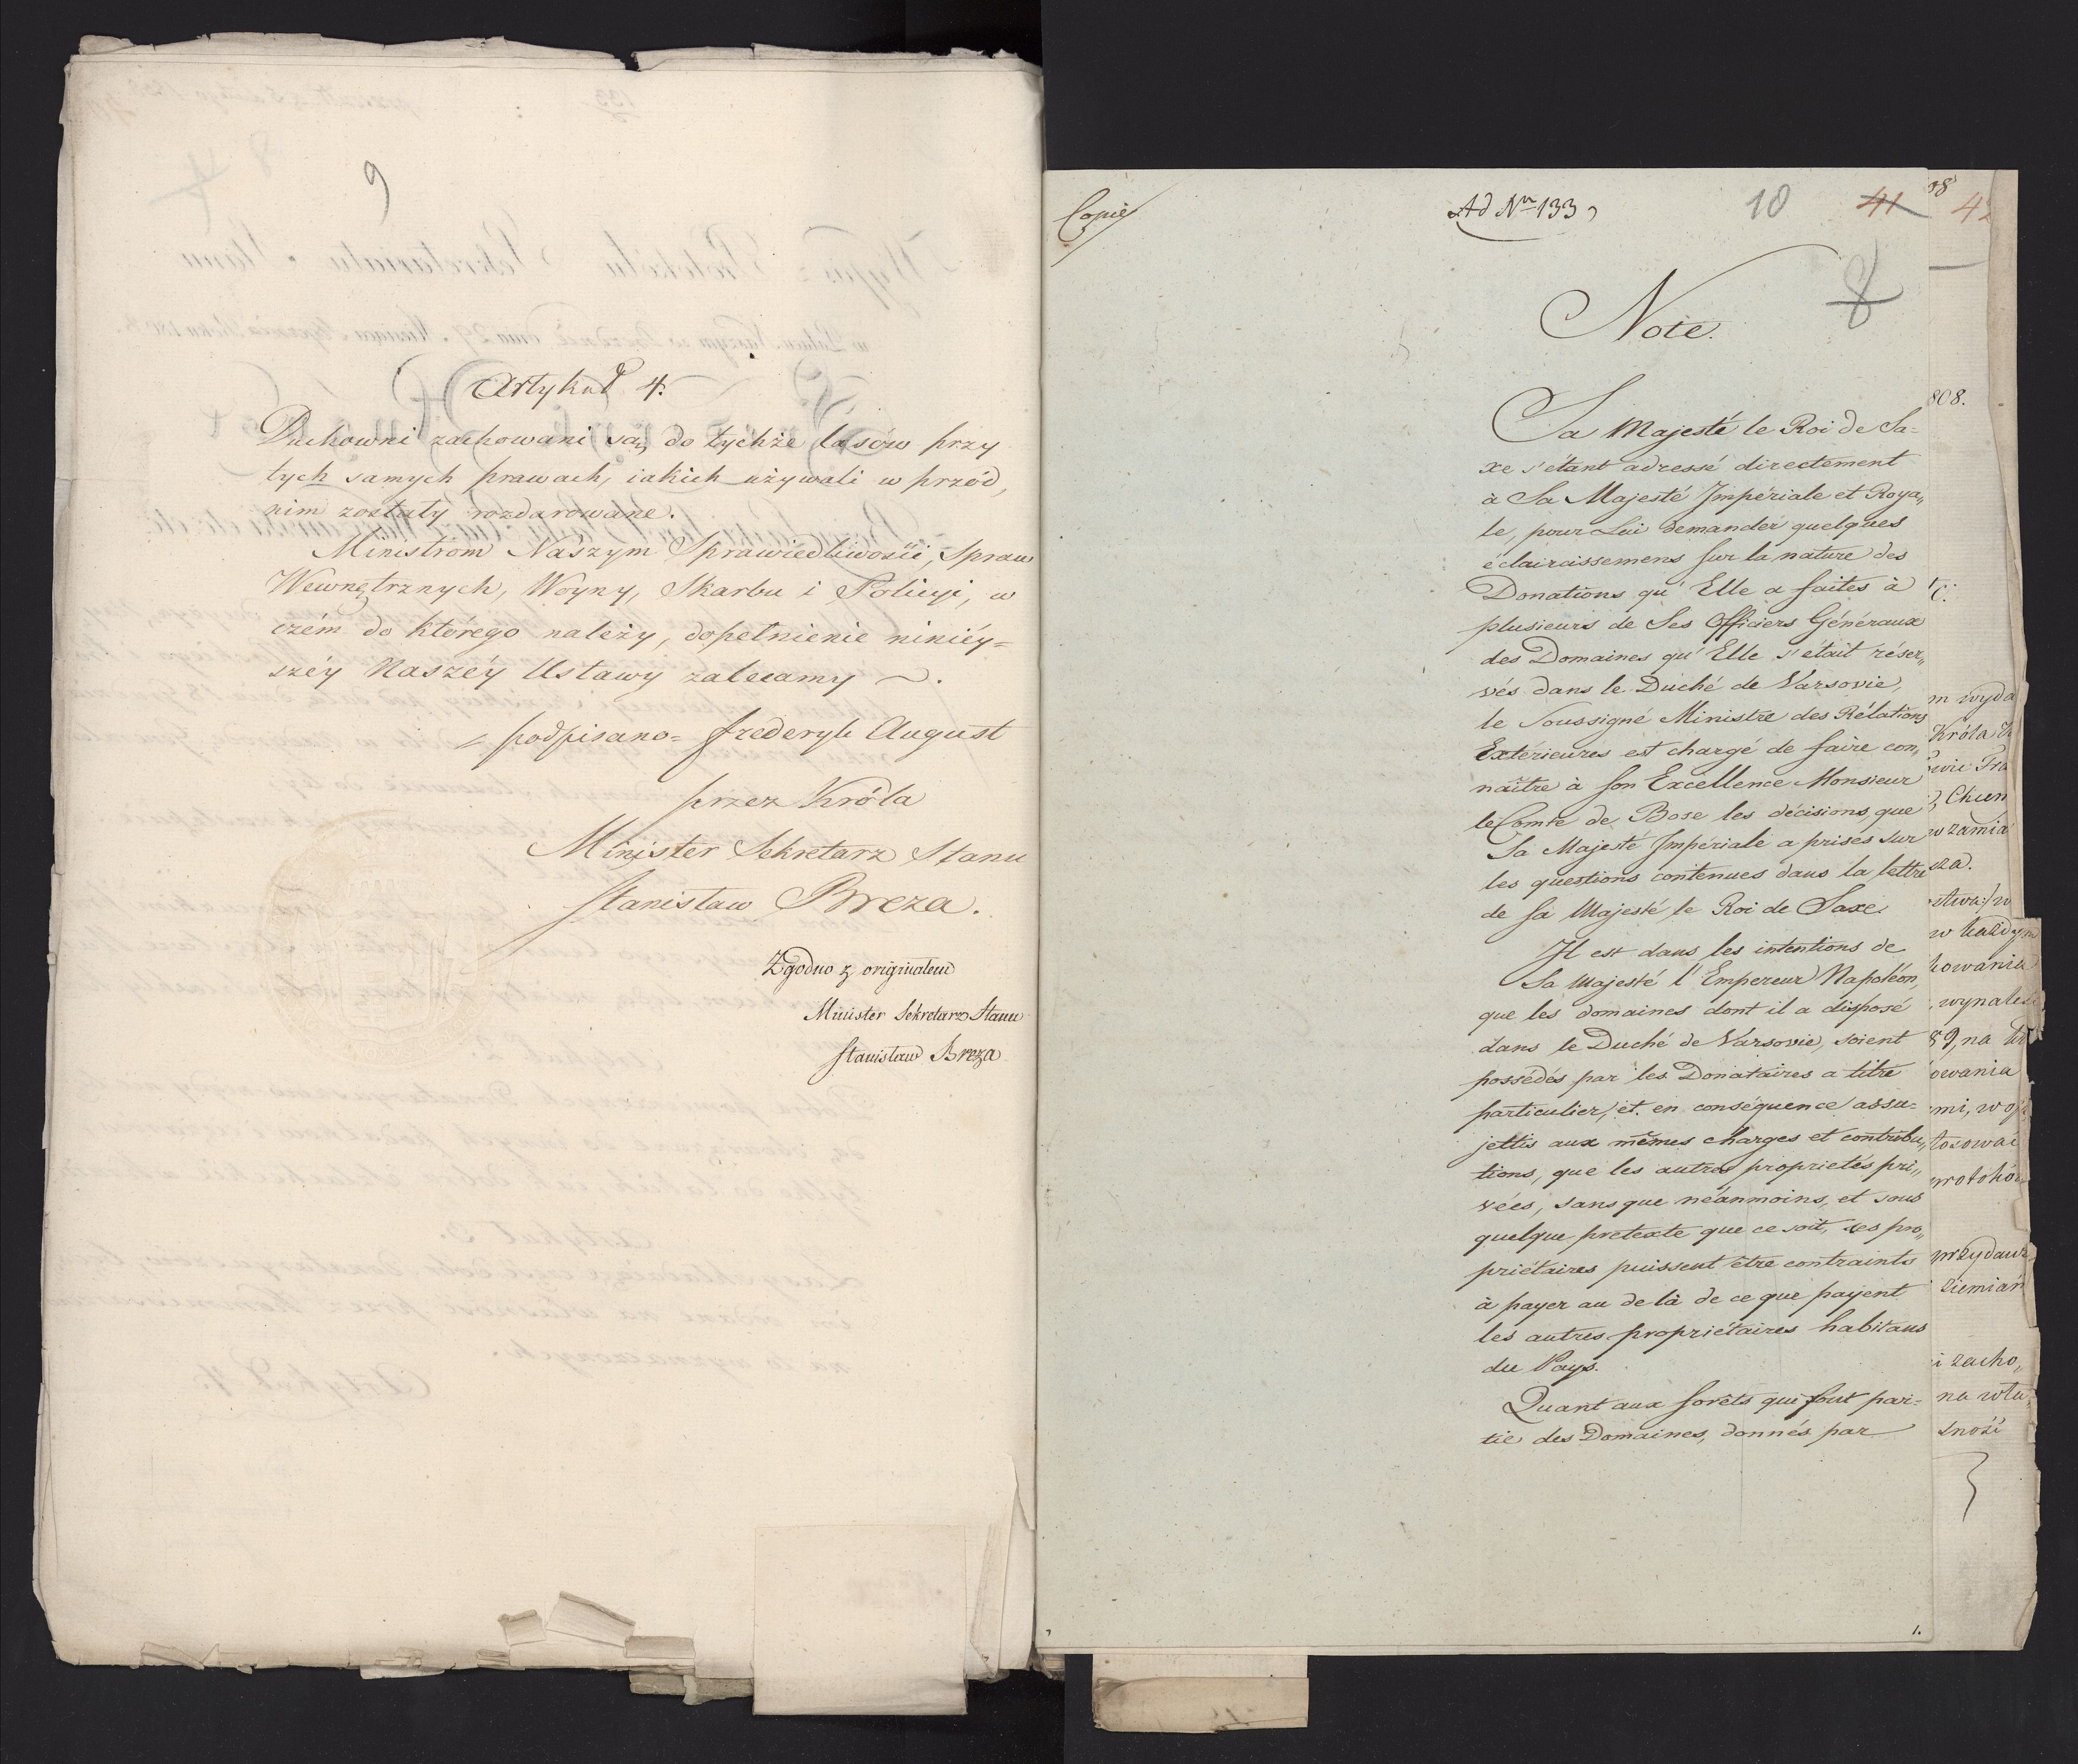 9
Artykuł 4.
Duchowni zachowani są, do tychże lasów przy
tych samych prawach, iakich używali w przód,
nim zostały rozdarowane.
Ministrom Naszym Sprawiedliwości, Spraw
Wewnętrznych, Woyny, Skarbu i Policyi, w
czém do którego należy, dopełnienie niniéy=
széy Naszéy Ustawy zalecamy.
podpisano= Frederyk August
przez Króla
Minister Sekretarz Stanu
Stanisław Breza.
Zgodno z originałem
Minister Sekretarz Stanu
Stanisław Breza
Copie
Ad Nrm 133
10 41
8
Note.
Sa Majesté le Roi de Sa=
xe s'étant adressé directement
à Sa Majesté Impériale et Roya„
le, pour Lui demander quelques
éclaircissemens sur la nature des
Donations qu'Elle a faites à
plusieurs de Ses Officiers Généraux
des Domaines qu'Elle s'était réser„
vés dans le Duché de Varsovie,
le Soussigné Ministre des Rélations
Extérieures est chargé de faire con„
naître à Son Excellence Monsieur
le Comte de Bose les décisions que
Sa Majesté Impériale a prises sur
les questions contenues dans la lettre
de Sa Majesté le Roi de Saxe.
Il est dans les intentions de
Sa Majesté l'Empereur Napoléon,
que les domaines dont il a disposé
dans le Duché de Varsovie, soient
possédés par les Donataires a titre
particulier, et en conséquence assu=
jettis aux mêmes charges et contribu„
tions, que les autres proprietés pri„
vées, sans que néanmoins, et sous
quelque pretexte que ce soit, ces pro„
priétaires puissent être contraints
à payer au delà de ce que payent
les autres propriétaires habitans
du Pays.
Quant aux forêts qui font par=
tie des Domaines, donnés par
1.
808.
m wyda
Króla
Chcem
w zamia
sza.
w każdym
howania
wynales
89, na
owania
mi, w
tosowai
przydaw
ziemian
i zacho„
na wła=
sność